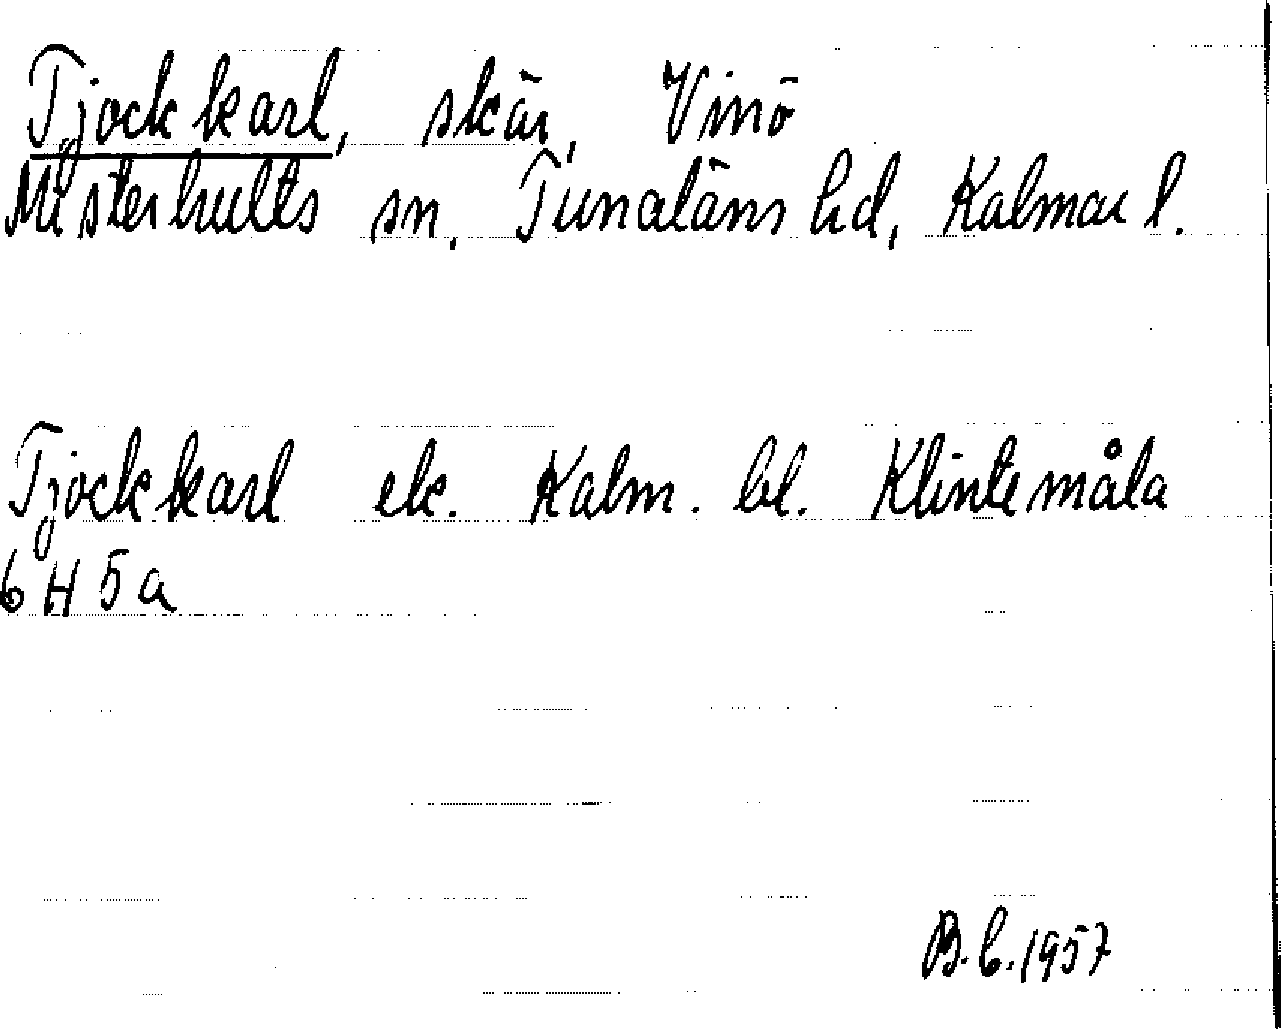 Tjockkarl, skär, Vinö
Misterhults sn, Tunaläns hd, Kalmar l.
Tjockkarl ek. Kalm. bl. Klintemåla
6H5a
B.C. 1957